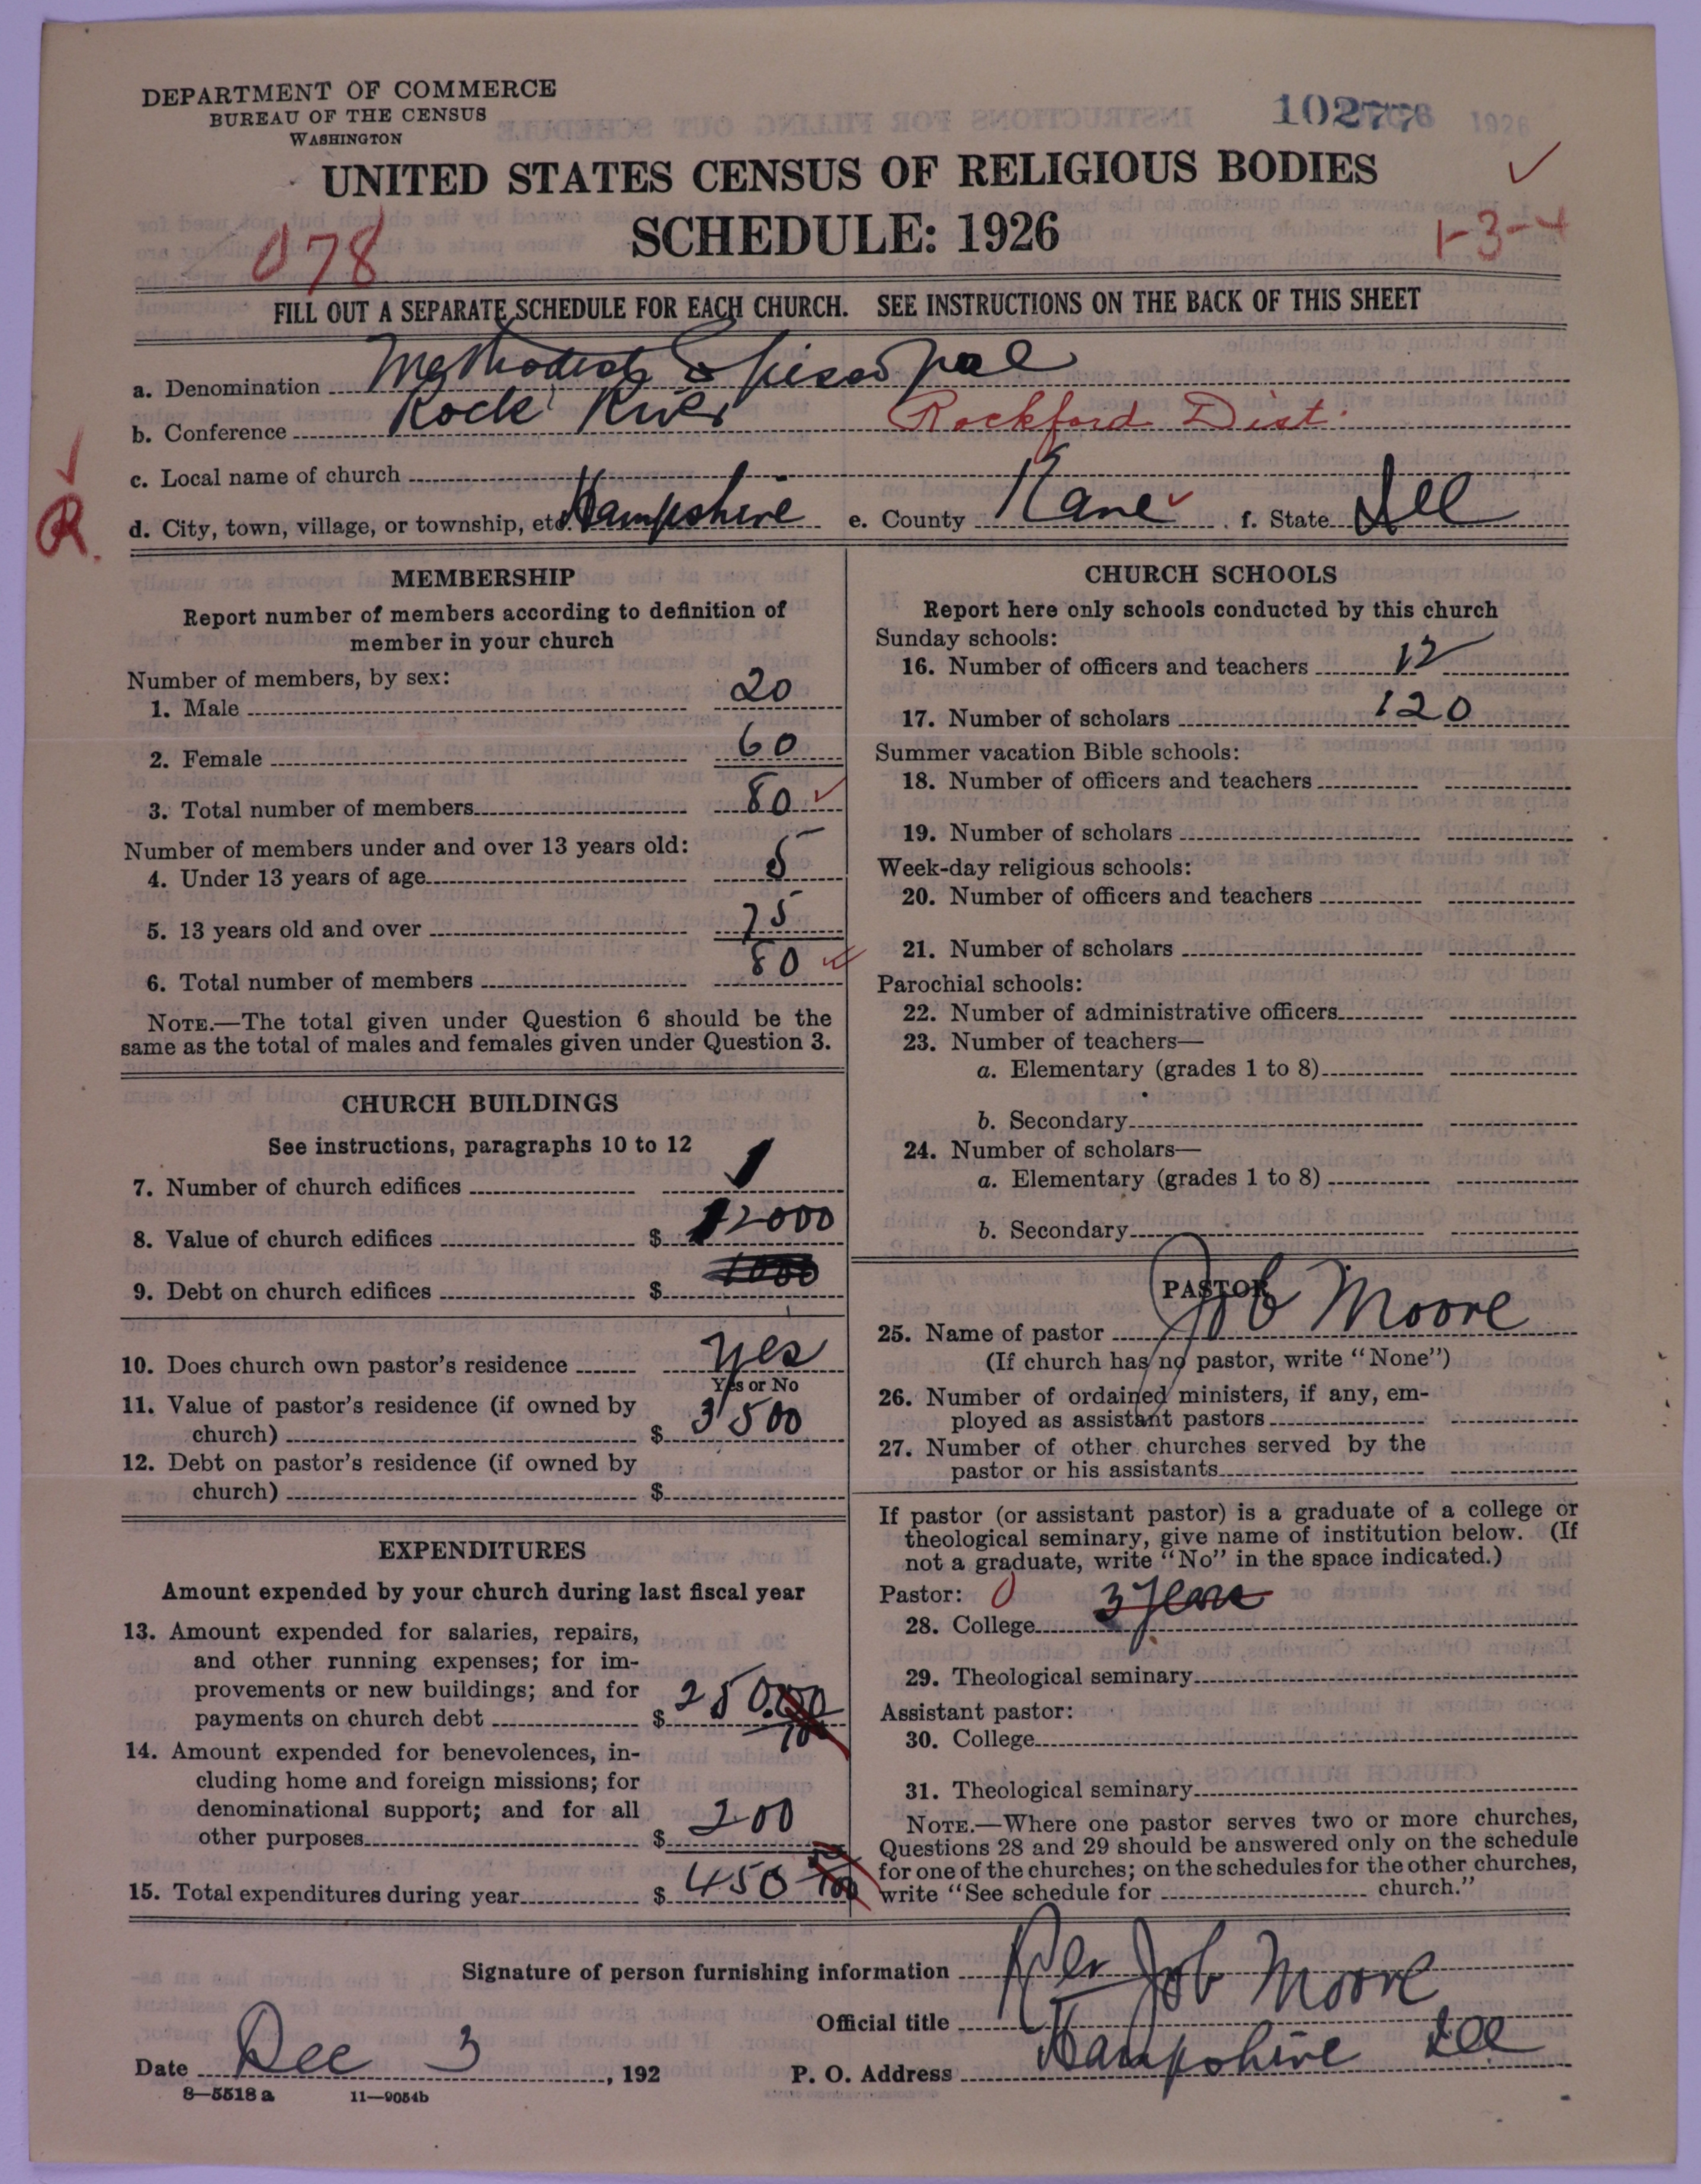 DEPARTMENT OF COMMERCE
BUREAU OF THE CENSUS
WASHINGTON
1926
UNITED STATES CENSUS OF RELIGIOUS BODIES
SCHEDULE: 1926
078
1-3-4
FILL OUT A SEPARATE SCHEDULE FOR EACH CHURCH. SEE INSTRUCTIONS ON THE BACK OF THIS SHEET
a. Denomination Methodist Episcopal
b. Conference Rock River Rockford Dist.
c. Local name of church
R.
d. City, town, village, or township, etc. Hampshire e. County Kane f. State Ill
MEMBERSHIP
Report number of members according to definition of
member in your church
Number of members, by sex:
1. Male 20
2. Female 60
3. Total number of members 80
Number of members under and over 13 years old:
4. Under 13 years of age 5
5. 13 years old and over 75
6. Total number of members 80
NOTE.—The total given under Question 6 should be the
same as the total of males and females given under Question 3.
CHURCH BUILDINGS
See instructions, paragraphs 10 to 12
7. Number of church edifices 1
8. Value of church edifices $ 12000
9. Debt on church edifices $
10. Does church own pastor's residence yes
Yes or No
11. Value of pastor's residence (if owned by
church) $ 3500
12. Debt on pastor's residence (if owned by
church) $
EXPENDITURES
Amount expended by your church during last fiscal year
13. Amount expended for salaries, repairs,
and other running expenses; for im-
provements or new buildings; and for
payments on church debt $ 250.
14. Amount expended for benevolences, in-
cluding home and foreign missions; for
denominational support; and for all
other purposes $ 200
15. Total expenditures during year $ 450
CHURCH SCHOOLS
Report here only schools conducted by this church
Sunday schools:
16. Number of officers and teachers 12
17. Number of scholars 120
Summer vacation Bible schools:
18. Number of officers and teachers
19. Number of scholars
Week-day religious schools:
20. Number of officers and teachers
21. Number of scholars
Parochial schools:
22. Number of administrative officers
23. Number of teachers—
a. Elementary (grades 1 to 8)
b. Secondary
24. Number of scholars—
a. Elementary (grades 1 to 8)
b. Secondary
PASTOR
25. Name of pastor Job Moore
(If church has no pastor, write "None")
26. Number of ordained ministers, if any, em-
ployed as assistant pastors
27. Number of other churches served by the
pastor or his assistants
If pastor (or assistant pastor) is a graduate of a college or
theological seminary, give name of institution below. (If
not a graduate, write "No" in the space indicated.)
Pastor: 0
28. College 3 years
29. Theological seminary
Assistant pastor:
30. College
31. Theological seminary
NOTE.—Where one pastor serves two or more churches,
Questions 28 and 29 should be answered only on the schedule
for one of the churches; on the schedules for the other churches,
write "See schedule for church."
Signature of person furnishing information Rev Job Moore
Official title
Date Dec 3, 192 P. O. Address Hampshire Ill
8—5518 a 11—9054b